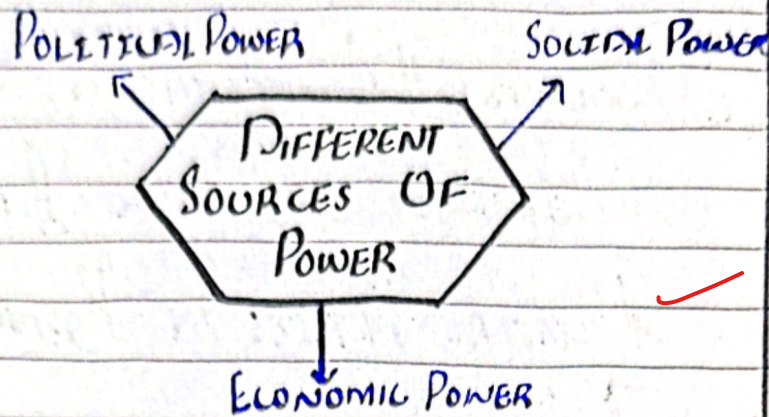 POLITICAL POWER
SOCIAL POWER
DIFFERENT
SOURCES OF
POWER
ECONOMIC POWER